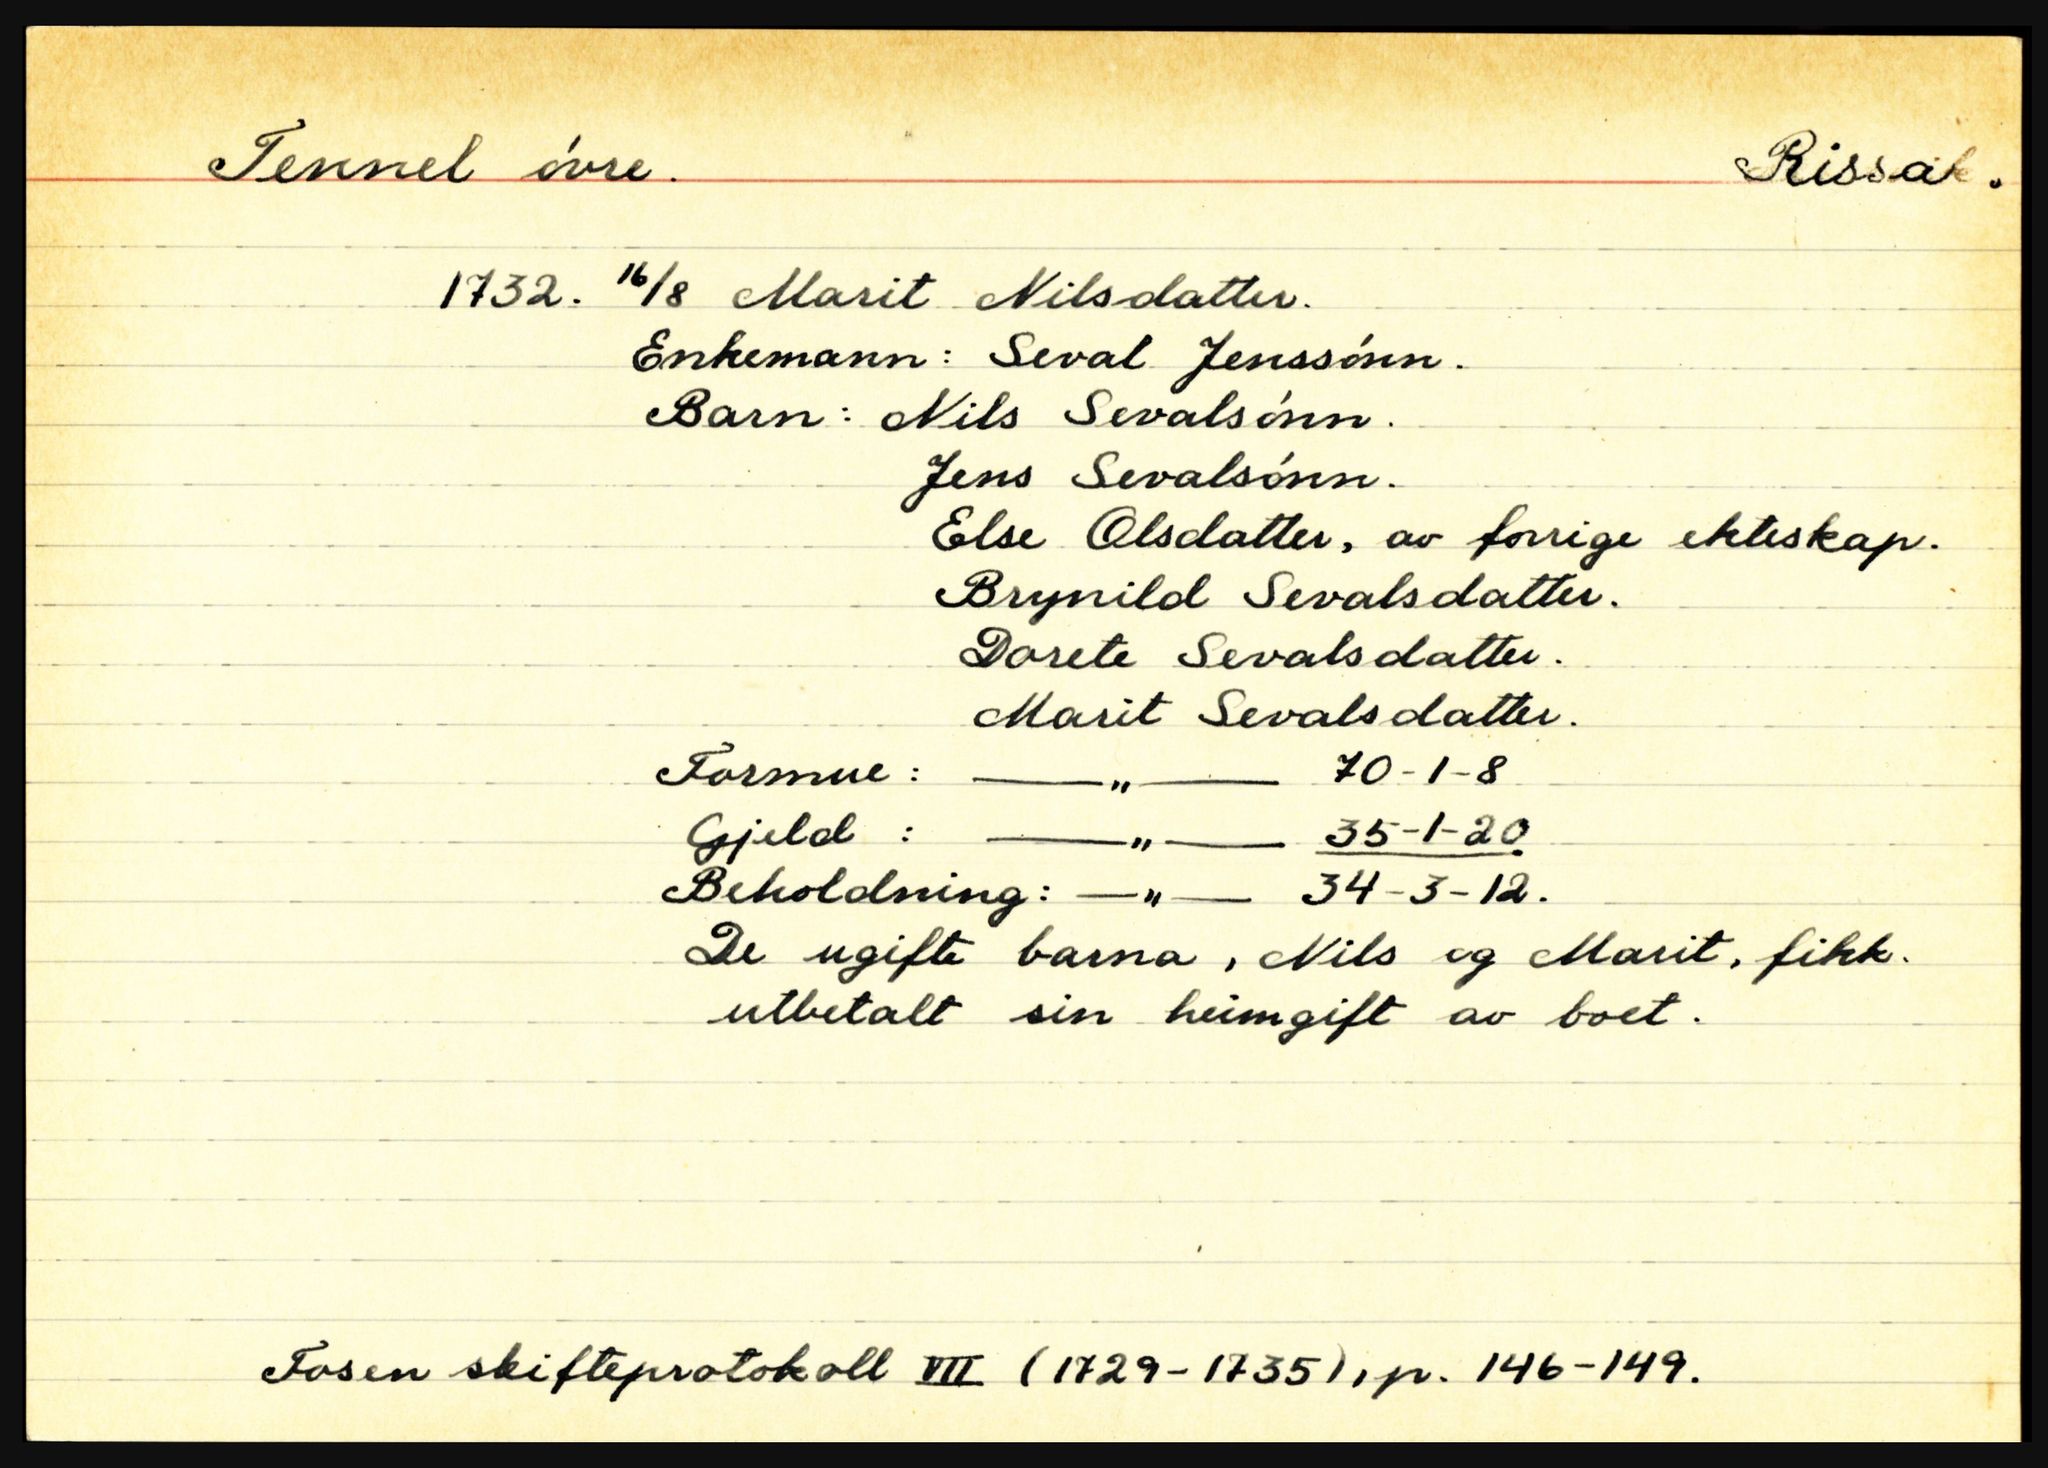 Tennel óvre. Rissa.
1732. 16/8 Marit Nilsdatter.
Enkemann: Seval Jenssónn.
Barn: Nils Sevalsónn.
Jens Sevalsónn.
Else Olsdatter, av forrige ekteskap.
Brynild Sevalsdatter.
Dorete Sevalsdatter.
Marit Sevalsdatter.
Formue: —„— 70-1-8
Gjeld : —„— 35-1-20
Beholdning: —„— 34-3-12.
De ugifte barna, Nils og Marit, fikk.
utbetalt sin heimgift av boet.
Fosen skifteprotokoll VII (1729-1735), p. 146-149.